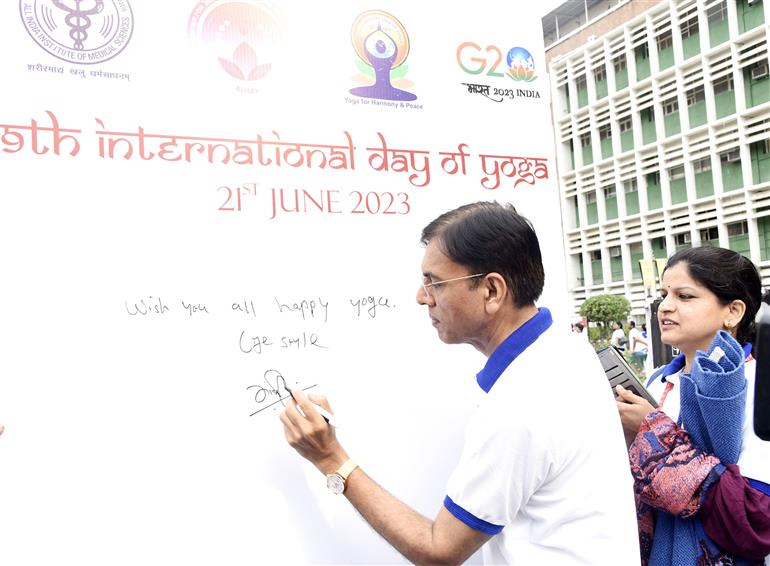 ALL INDIA INSTITUTE OF MEDICAL SCIENCES
शरीरमाद्यं खलु धर्मसाधनम्
Yoga for Harmony & Peace
G20
भारत 2023 INDIA
9th International Day of Yoga
21ST JUNE 2023
Wish you all happy yoga
life style